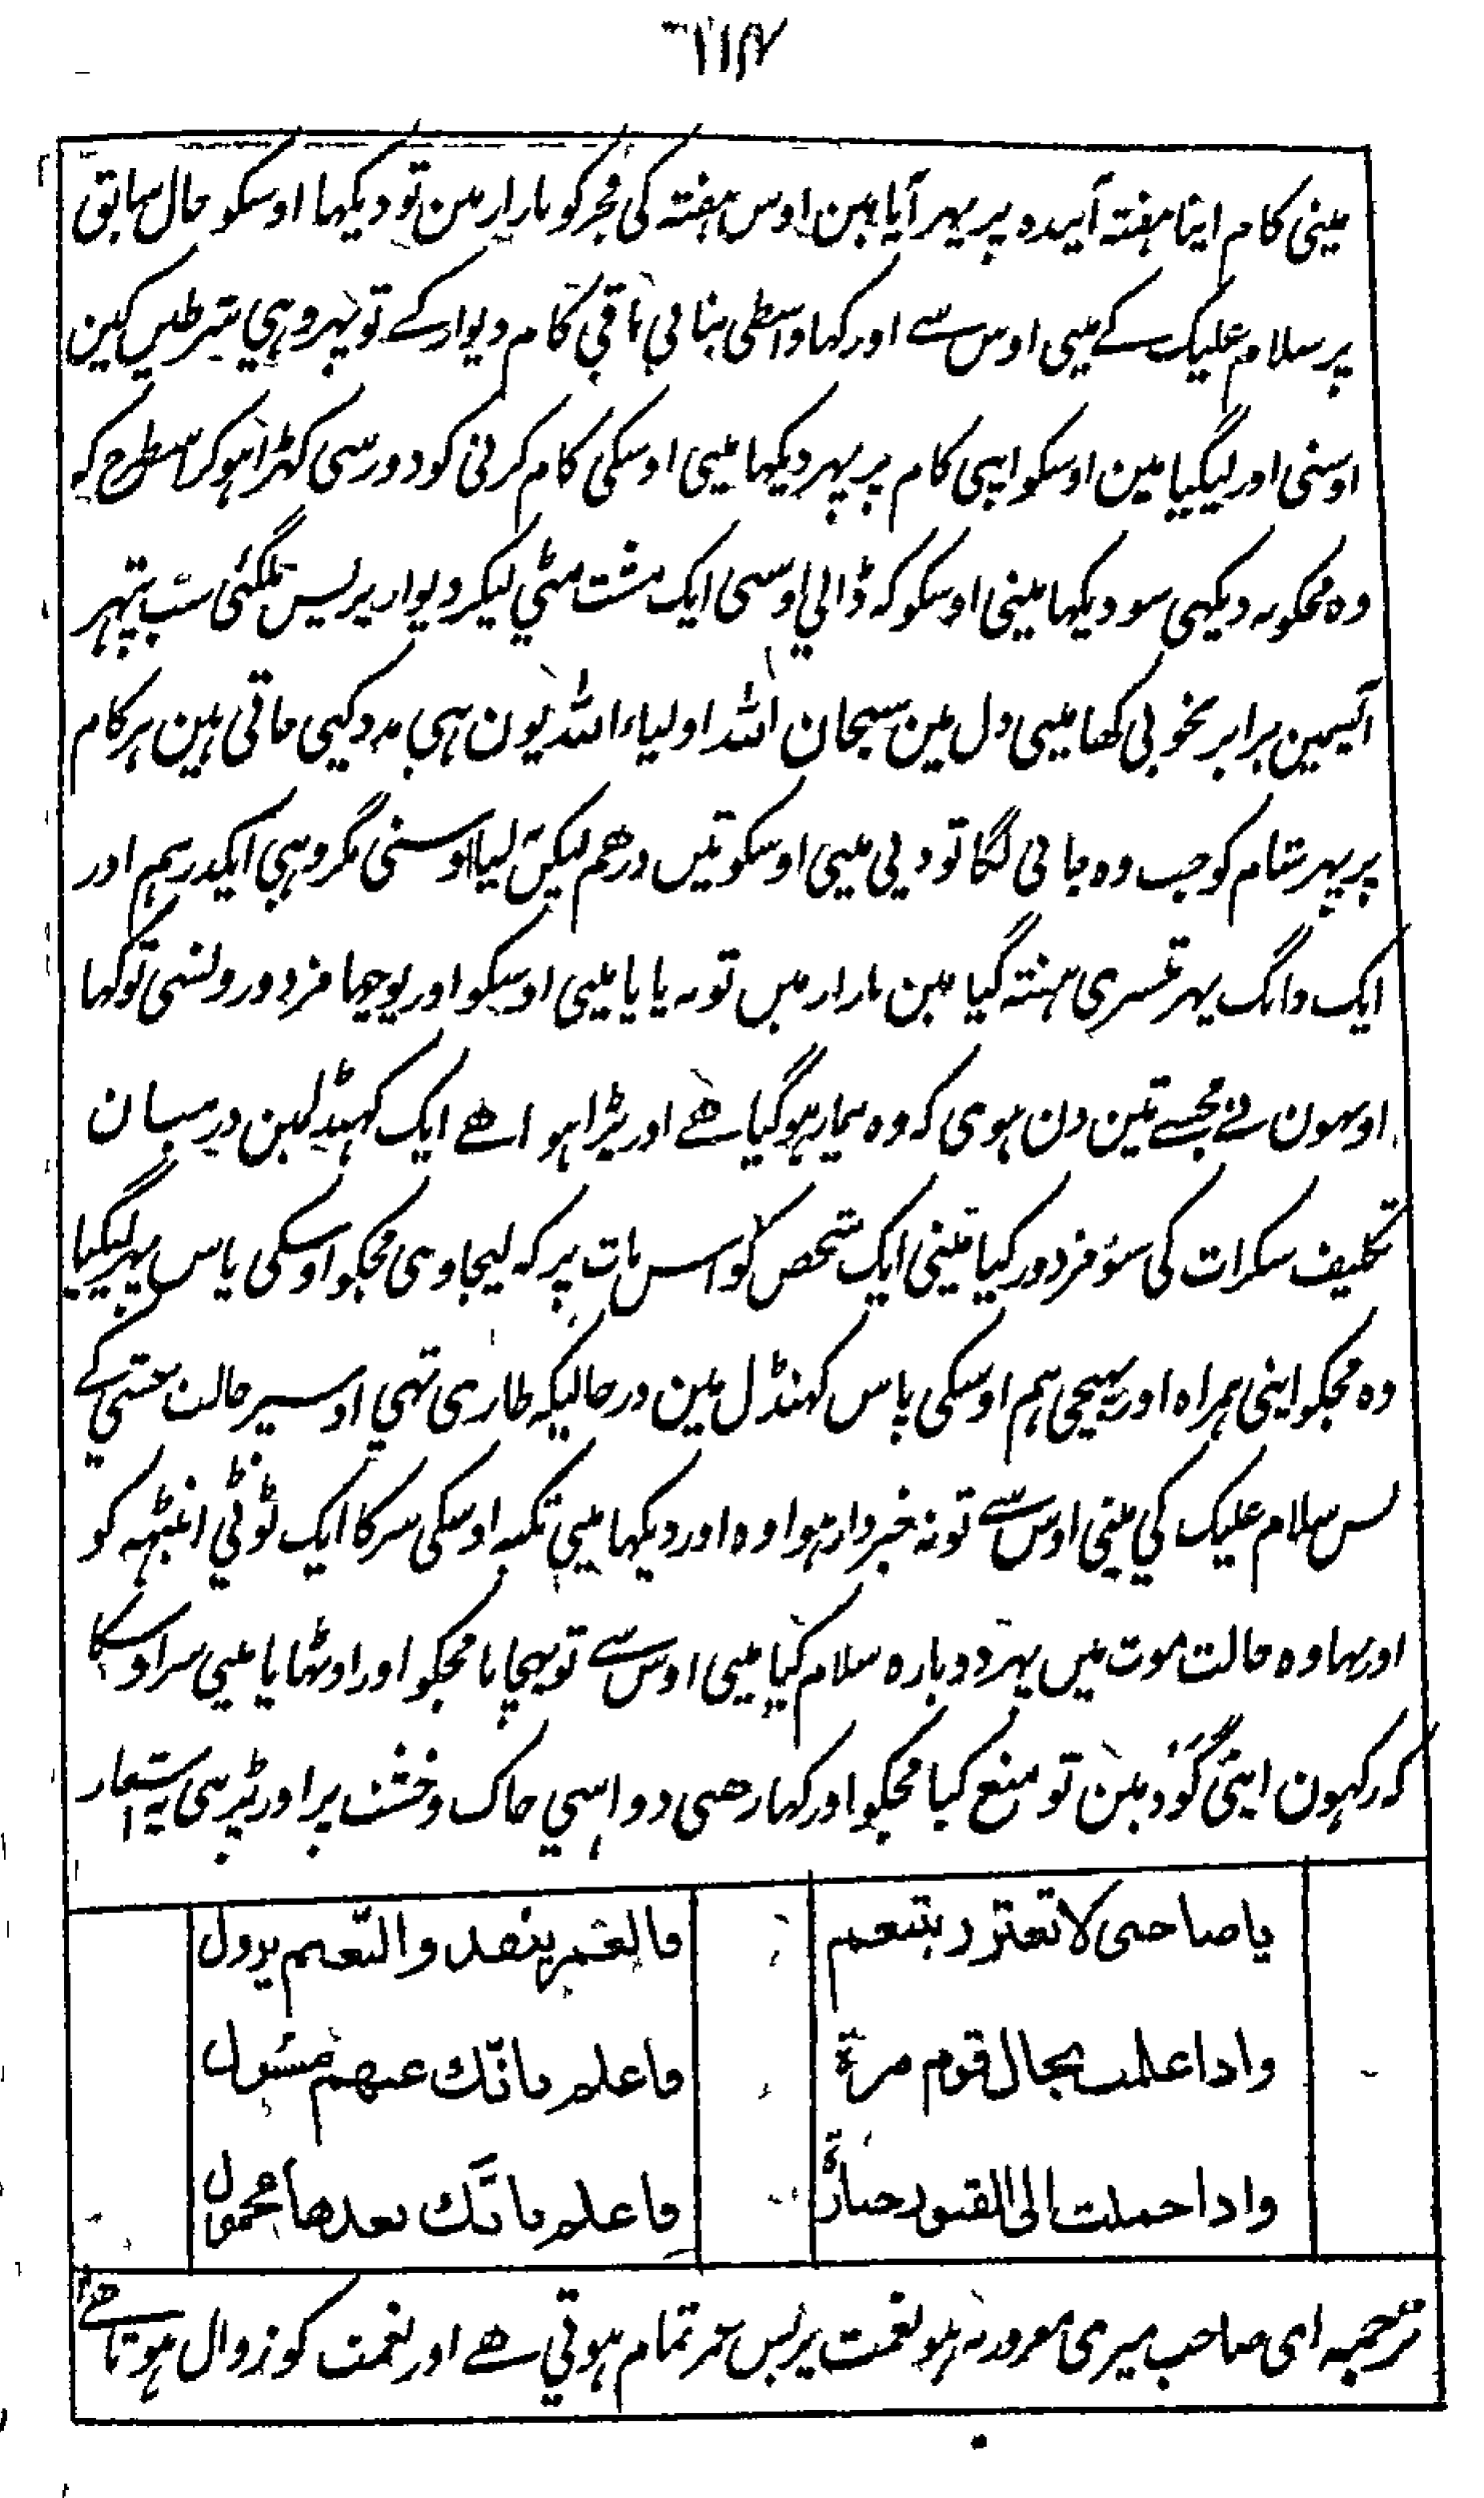 مینی کام اپنا ہفتہ آیندہ پر پہر آیا مین اوس ہفتہ کی فجر کو بازار مین تو دیکہا اوسکو حال سابق
پر سلام علیک کے مینی اوس سے اور کہا واسطی بنانی باقی کام دیوار کے تو پہر وہی شرطین کین
اوسنی اور لیگیا مین اوسکو اپنی کام پر پہر دیکہا مینی اوسکی کام کرنی کو دور سی کہڑا ہوکر اسطرح کہ
وہ مجکو نہ دیکہی سو دیکہا مینی اوسکو کہ ڈالی اوسی ایک مشت مٹی لیکر دیوار پر پس لگگئی سب پتہر
آپسمین برابر بخوبی کہا مینی دل مین سبحان الله اولیاء الله یون ہی مدد کیی جاتی ہین ہر کام
پر پہر شام کو جب وہ جانی لگا تو دیی مینی اوسکو تین درهم لیکن لیا اوسنی مگر وہی ایکدرہم اور
ایک دانگ پہر تیسری ہفتہ گیا مین بازار مین تو نہ پایا مینی اوسکو اور پوچہا مزدورونسی تو کہا
اونہون نے مجسے تین دن ہوی کہ وہ بیمار ہوگیا ہے اور پڑا ہوا ہے ایک کہنڈلمین درمیان
تکلیف سکرات کی سو مزدور کیا مینی ایک شخص کو اس بات پر کہ لیجاوی مجکو اوسکی پاس پہر لیگیا
وہ مجکو اپنی ہمراہ اور پہنچی ہم اوسکی پاس کہنڈل مین در حالیکہ طاری تہی اوسپر حالت غشی کے
پس سلام علیک کی مینی اوس سے تو نہ خبردار ہوا وہ اور دیکہا مینی تکیہ اوسکی سر کا ایک ٹوٹی اینٹہہ کو
اور تہا وہ حالت موت مین پہر دوبارہ سلام کیا مینی اوس سے تو پہچانا مجکو اور اوٹہایا مینی سر اوسکا
کہ رکہون اپنی گود مین تو منع کیا مجکو اور کہا رهنی دو اسی خاک و خشت پر اور پڑہی یہ اشعار
یا صاحبی لا تغترر بتنعم
فالعمر ینفد والنعیم یزول
واذا علمت بحال قوم مرة
فاعلم بانّك عنهم مسئول
واذا حملت الی القبور جنازة
فاعلم بانّك بعدها محمول
ترجمہ ای صاحب میری مغرور نہ ہو نعمت پر پس عمر تمام ہوتی ہے اور نعمت کو زوال ہوتا ہے